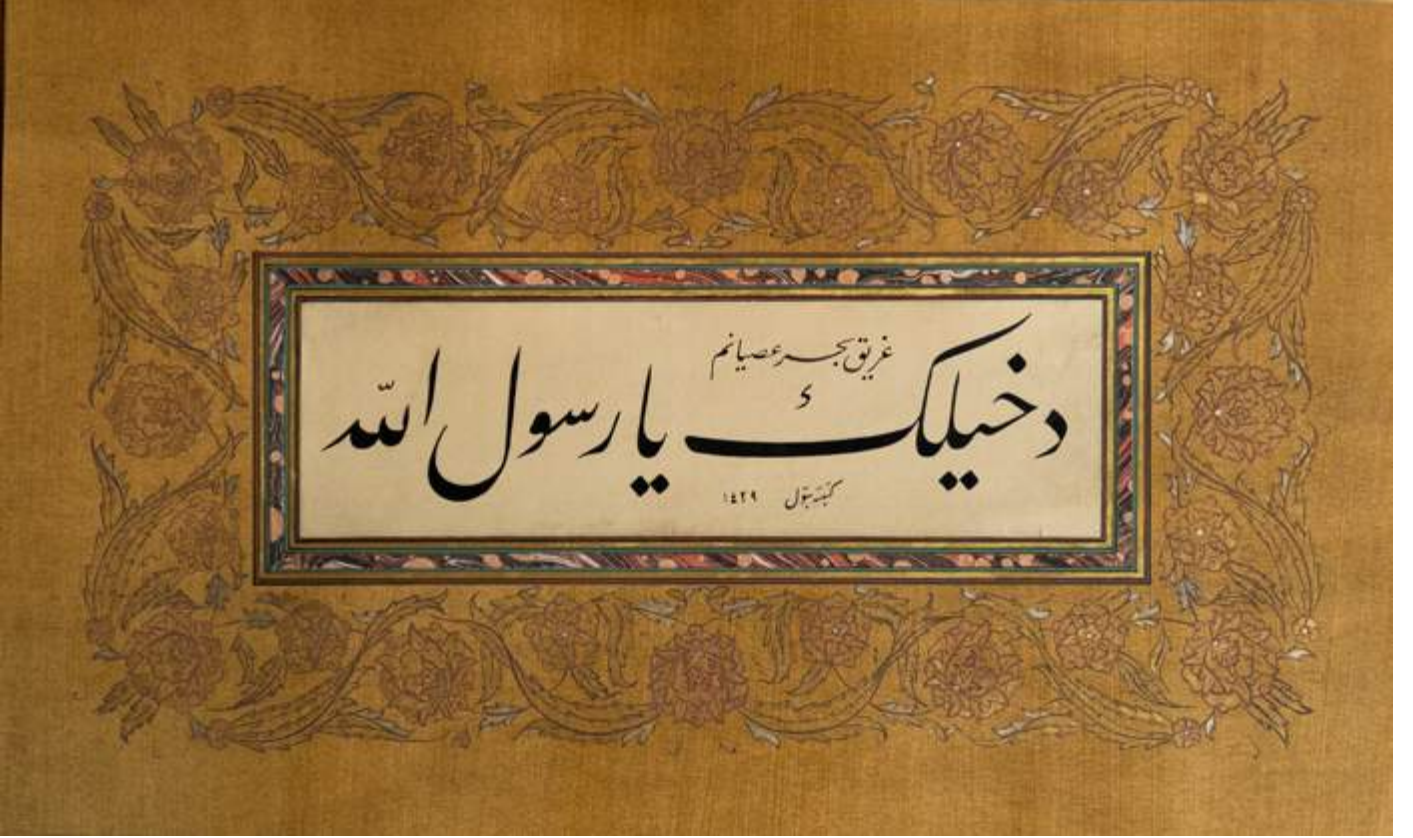 غريق بحر عصيانم
دخيلك يا رسول الله
كتبه بتول ١٤٢٩